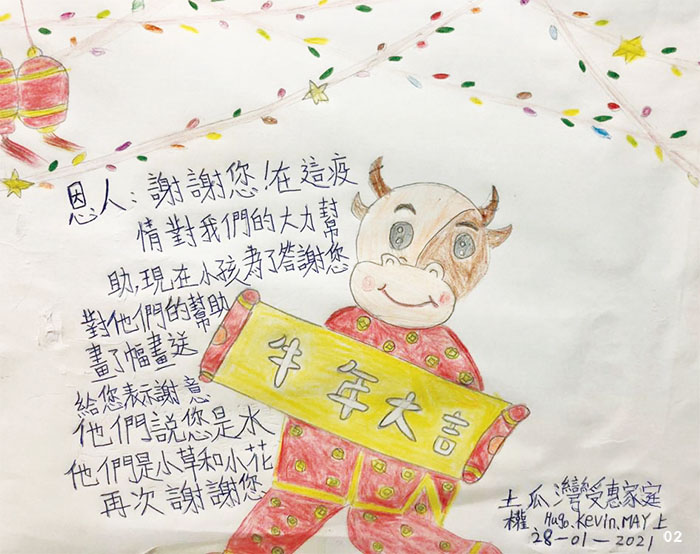 恩人：謝謝您！在這疫
情對我們的大力幫
助,現在小孩為了答謝您
對他們的幫助
畫了幅畫送
給您表示謝意
他們説您是水
他們是小草和小花
再次謝謝您
牛年大吉
土瓜灣受惠家庭
權 Hugo.Kevin.MAY上
28-01-2021
02